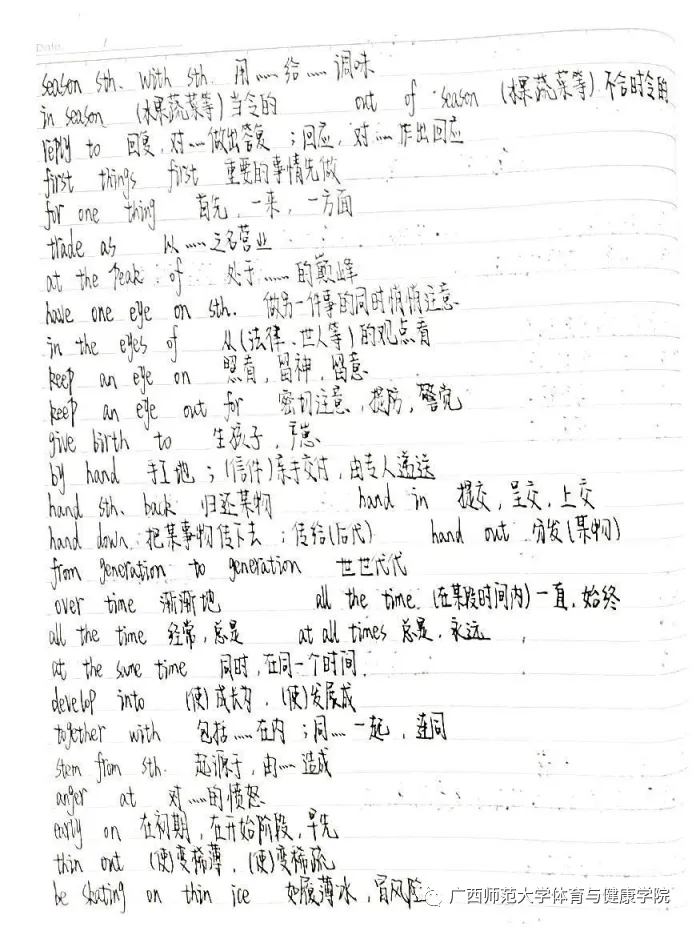 Date. /
season sth. with sth. 用……给……调味
in season (水果蔬菜等)当令的 out of season (水果蔬菜等)不合时令的
reply to 回复,对……做出答复;回应,对……作出回应
first things first 重要的事情先做
for one thing 首先,一来,一方面
trade as 以……之名营业
at the peak of 处于……的巅峰
have one eye on sth. 做另一件事的同时悄悄注意
in the eyes of 从(法律、世人等)的观点看
keep an eye on 照看,留神,留意
keep an eye out for 密切注意,提防,警觉
give birth to 生孩子,产崽
by hand 手工地;(信件)亲手交付,由专人递送
hand sth. back 归还某物 hand in 提交,呈交,上交
hand down 把某事物传下去;传给(后代) hand out 分发(某物)
from generation to generation 世世代代
over time 渐渐地 all the time (在某段时间内)一直,始终
all the time 经常,总是 at all times 总是,永远
at the same time 同时,在同一个时间
develop into (使)成长为,(使)发展成
together with 包括……在内;同……一起,连同
stem from sth. 起源于,由……造成
anger at 对……的愤怒
early on 在初期,在开始阶段,早先
thin out (使)变稀薄,(使)变稀疏
be skating on thin ice 如履薄冰,冒风险
广西师范大学体育与健康学院